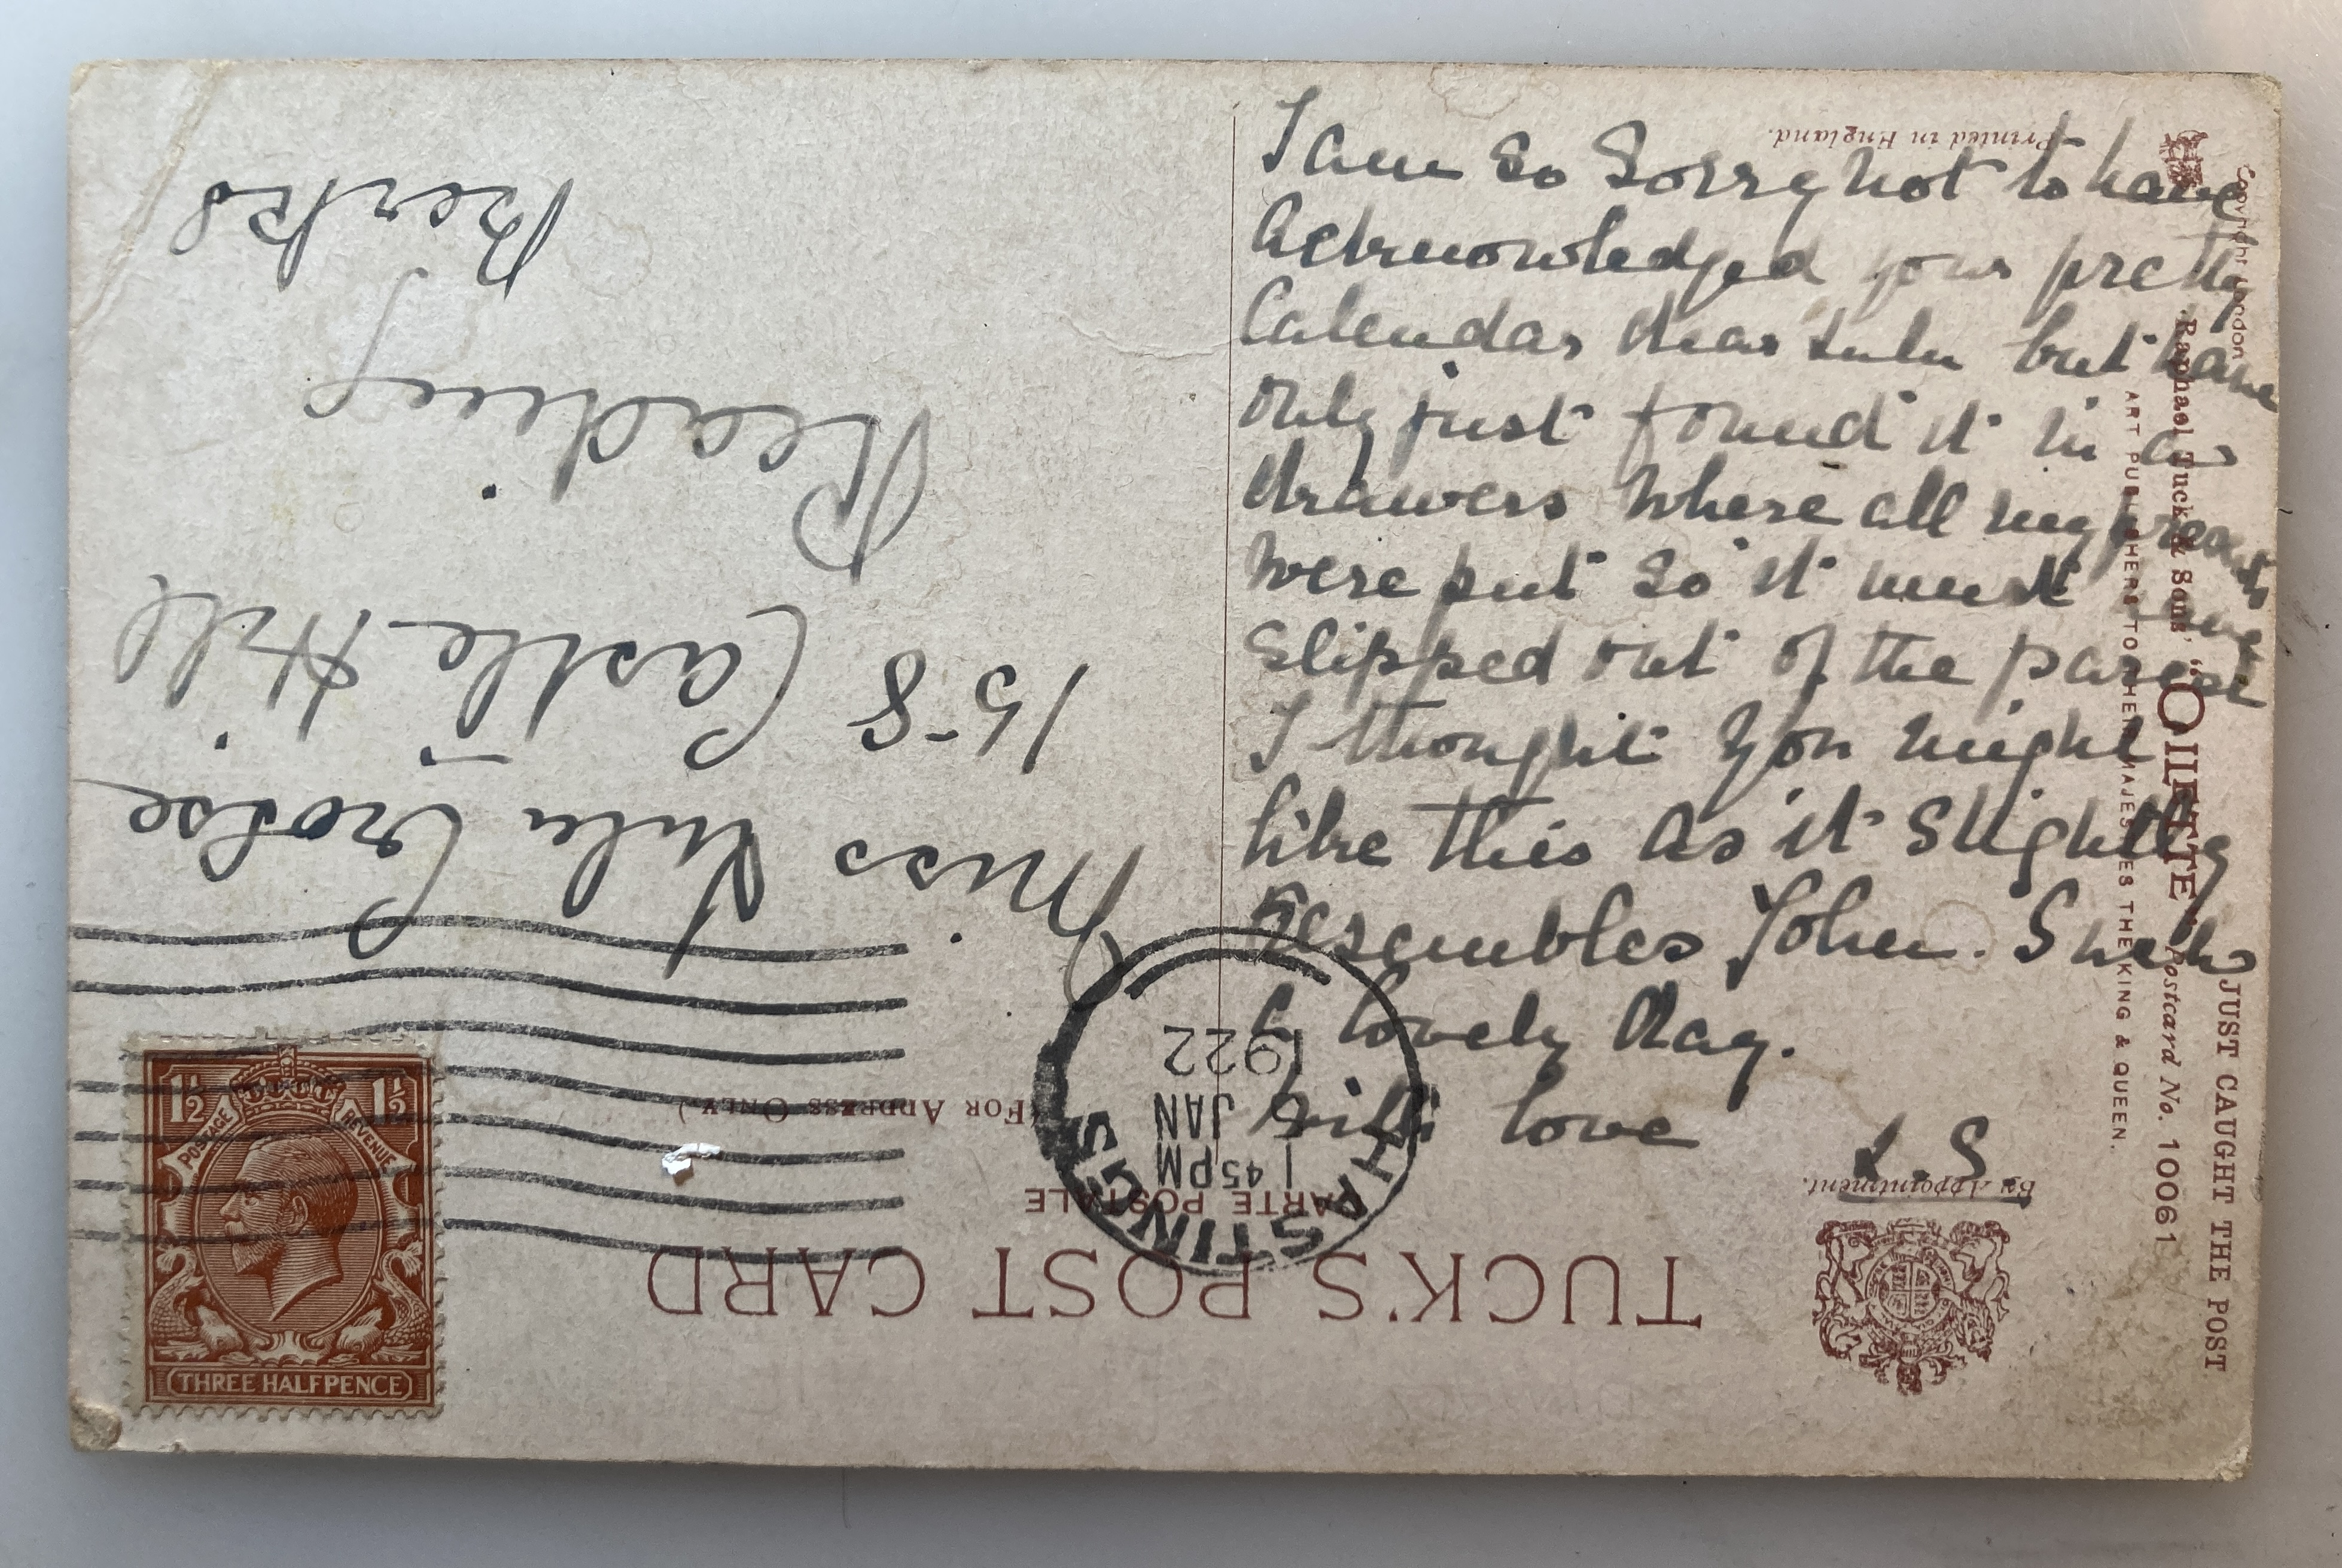 I am so sorry not to have
acknowledged your pretty
Calendar dear Lulu but have
only just found it in a
drawers where all my presents
were put so it must have
slipped out of the parcel
I thought you might
like this as it slightly
resembles John. Such
a lovely day.
With love
L.S.
Miss Lulu Crosse
158 Castle Hill
Reading
Berks
TUCK'S POST CARD
CARTE POSTALE
(FOR ADDRESS ONLY)
HASTINGS
1 45PM
JAN
1922
POSTAGE
REVENUE
1½
1½
THREE HALFPENCE
By Appointment.
Printed in England.
Copyright London
Raphael Tuck & Sons' "OILETTE" Postcard No. 10061
ART PUBLISHERS TO THEIR MAJESTIES THE KING & QUEEN.
JUST CAUGHT THE POST.